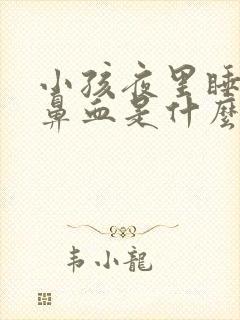 小孩夜里睡
鼻血是什麽
韦小龍